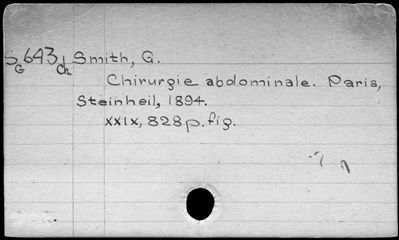 SG 643 Ch Smith, G.
Chirurgie abdominale. Paris,
Steinheil, 1894.
xxix, 828p. fig.